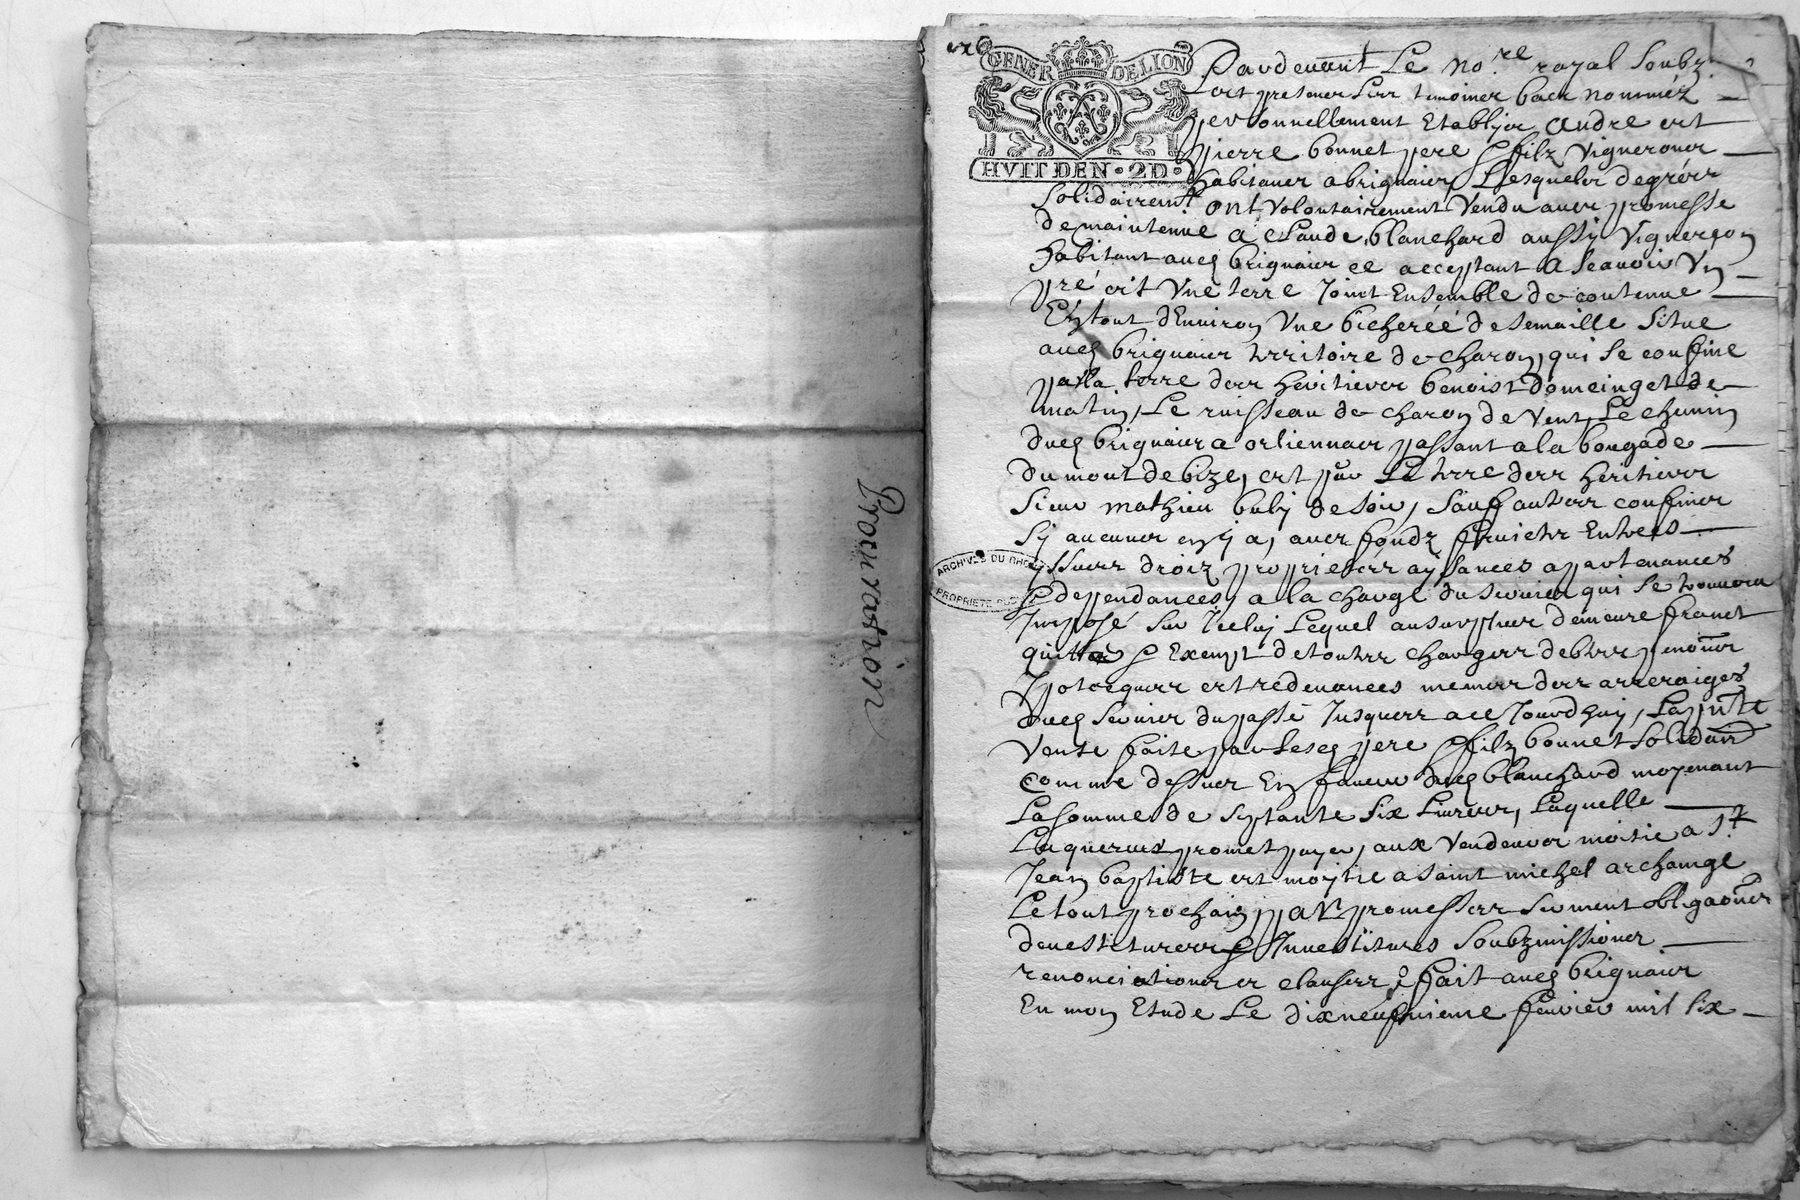 Procuration
GENER DE LION
HVIT DEN · 2D ·
Pardevant Le no.re royal soubz.
et presener tesmoings bas nommez
personnellement Establyes andre et
pierre bonnet pere & filz vignerons
habitans a brignais, Lesquels degrés
solidairemt ont volontairement vendu avec promesse
de maintenue a Claude blanchard aussy vigneron
habitant aud brignais ce acceptant a scavoir Un
pré et Une terre Joint Ensemble de contenue
En tout dEnviron Une bicherée de semaille situe
aud brignais territoire de charon, qui se confine
par la terre des heritiers benoist domeinget de
matin, Le ruisseau de charon de vent, Le chemin
dud brignais a orliennas passant a la bougade
du mont de bize, et par La terre des heritiers
sieur mathieu buby de soir, sauf autres confines
sy aucunes en y a, avec fondz fruicts Entrees
yssues droiz proprietes aysances apartenances
& deppendances, a la charge du servis qui se trouvera
Imposé sur Iceluy Lequel au surplus demeure franct
quitte & Exempt de toutes charges debtes pensions
ypotecques et redevances mesmes des arreraiges
dud servis du passé Jusques a ce Jourdhuy, La pnte
vente faite par lesd pere & filz bonnet solidairt
comme dessus En faveur dud blanchard moyenant
La somme de septante six Livres, Laquelle
promet payer, aux vendeurs moitie a St
Jean baptiste et moytie a saint michel archange
Le tout prochain, par promesses serment obligaons
devestitures & Investitures soubzmissions
renonciations et clauses & fait aud brignais
En mon Etude Le dixneufvieme fevrier mil six
ARCHIVES DU RHONE
PROPRIETE PUB